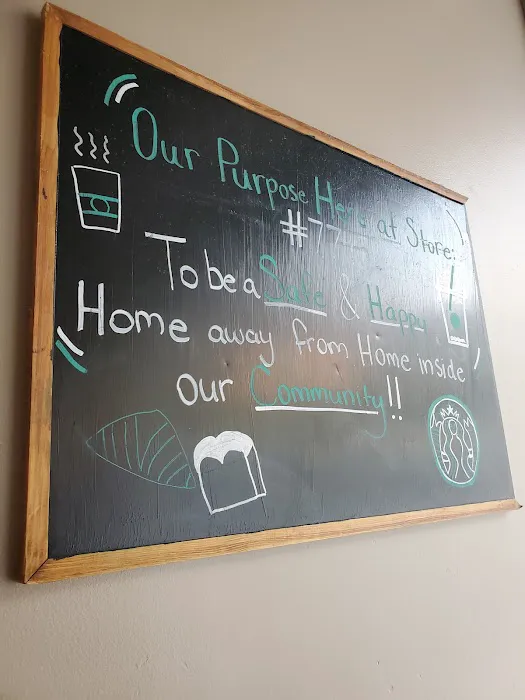 Our Purpose Here at Store:
#77
To be a Safe & Happy
Home away from Home inside
our Community!!